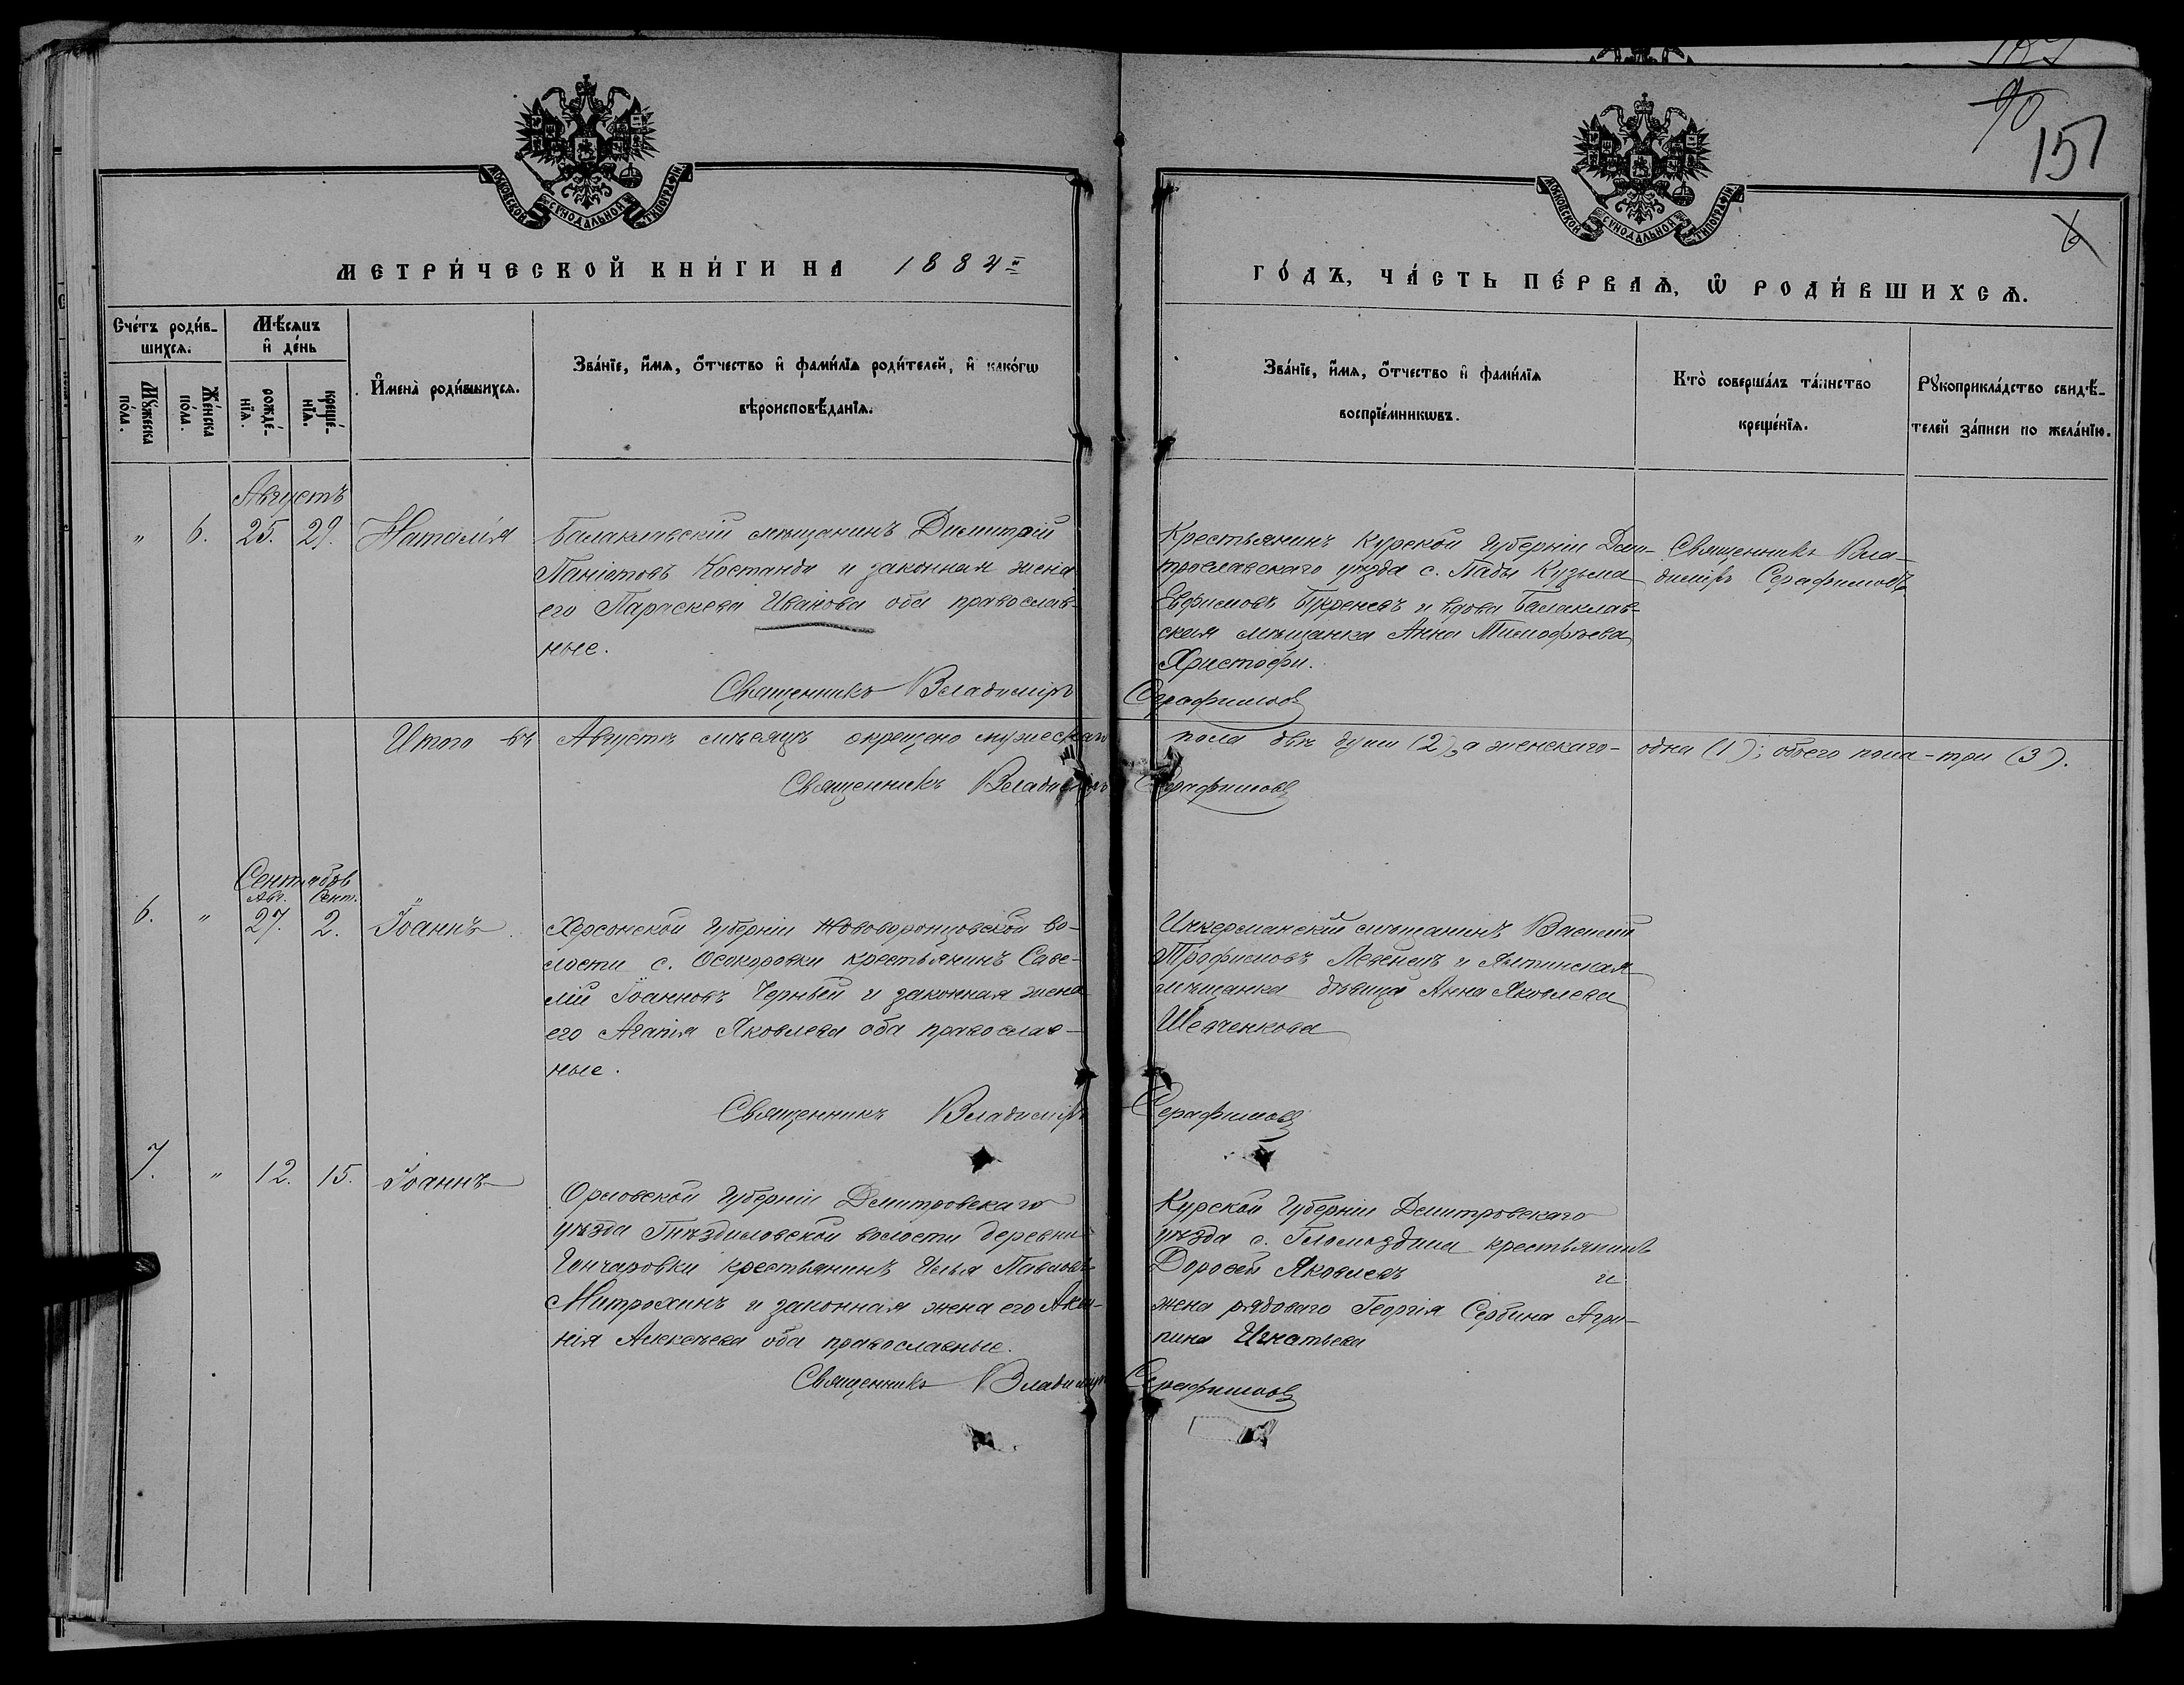 187
90
151
6
МОСКОВСКОЙ СѴНОДАЛЬНОЙ ТИПОГРАФІИ
МОСКОВСКОЙ СѴНОДАЛЬНОЙ ТИПОГРАФІИ
МЕТРИ́ЧЕСКОЙ КНИ́ГИ НА 1884й
ГО́ДЪ, ЧА́СТЬ ПЕ́РВАѦ, Ѡ РОДИ́ВШИХСѦ.
Сче́тъ роди́в-
шихсѧ.
Мꙋ́жеска
по́ла.
Же́нска
по́ла.
Мѣ́сѧцъ
и҆ де́нь
рожде́-
нїѧ.
креще́-
нїѧ.
И҆мена̀ роди́вшихсѧ.
Зва́нїе, и҆́мѧ, ѻ҆́тчество и҆ фами́лїѧ роди́телей, и҆ како́гѡ
вѣроисповѣ́данїѧ.
Зва́нїе, и҆́мѧ, ѻ҆́тчество и҆ фами́лїѧ
воспрїе́мникѡвъ.
Кто̀ соверша́лъ та́инство
креще́нїѧ.
Рꙋкоприкла́дство свидѣ́-
телей за́писи по жела́нїю.
Августъ
" 6. 25. 29. Наталія
Балаклавскій мѣщанинъ Димитрій
Панiотовъ Костанда и законная жена
его Параскева Иванова оба православ-
ные.
Священникъ Владиміръ Серафимовъ
Крестьянинъ Курской губерніи Дми-
трославскаго уѣзда с. Пады Кузьма
Евфимовъ и вдова Балаклав-
ская мѣщанка Анна Тимофѣева
Христофи.
Священникъ Вла-
диміръ Серафимовъ
Итого въ Августѣ мѣсяцѣ окрещено мужескаго пола двѣ души (2), а женскаго - одна (1); обоего пола - три (3).
Священникъ Владиміръ Серафимовъ
Сентябрь
Авг. Сент.
6. " 27. 2. Іоаннъ
Херсонской губерніи Нововоронцовской во-
лости с. Осокоровки крестьянинъ Саве-
лій Іоанновъ Чернѣй и законная жена
его Агапія Яковлева оба православ-
ные.
Священникъ Владиміръ Серафимовъ
Инкерманскій мѣщанинъ Василій
Трофимовъ Левенецъ и Ялтинская
мѣщанка дѣвица Анна Яковлева
Шевченкова
7. " 12. 15. Іоаннъ
Орловской губерніи Дмитровскаго
уѣзда Гнѣздиловской волости деревни
Гончаровки крестьянинъ Илья Павловъ
Митрохинъ и законная жена его
Алексѣева оба православные.
Священникъ Владиміръ Серафимовъ
Курской губерніи Дмитровскаго
уѣзда с. Гломаздина крестьянинъ
Дорофей Яковлевъ и
жена рядоваго Георгія Сербина Агри-
пина Игнатьева